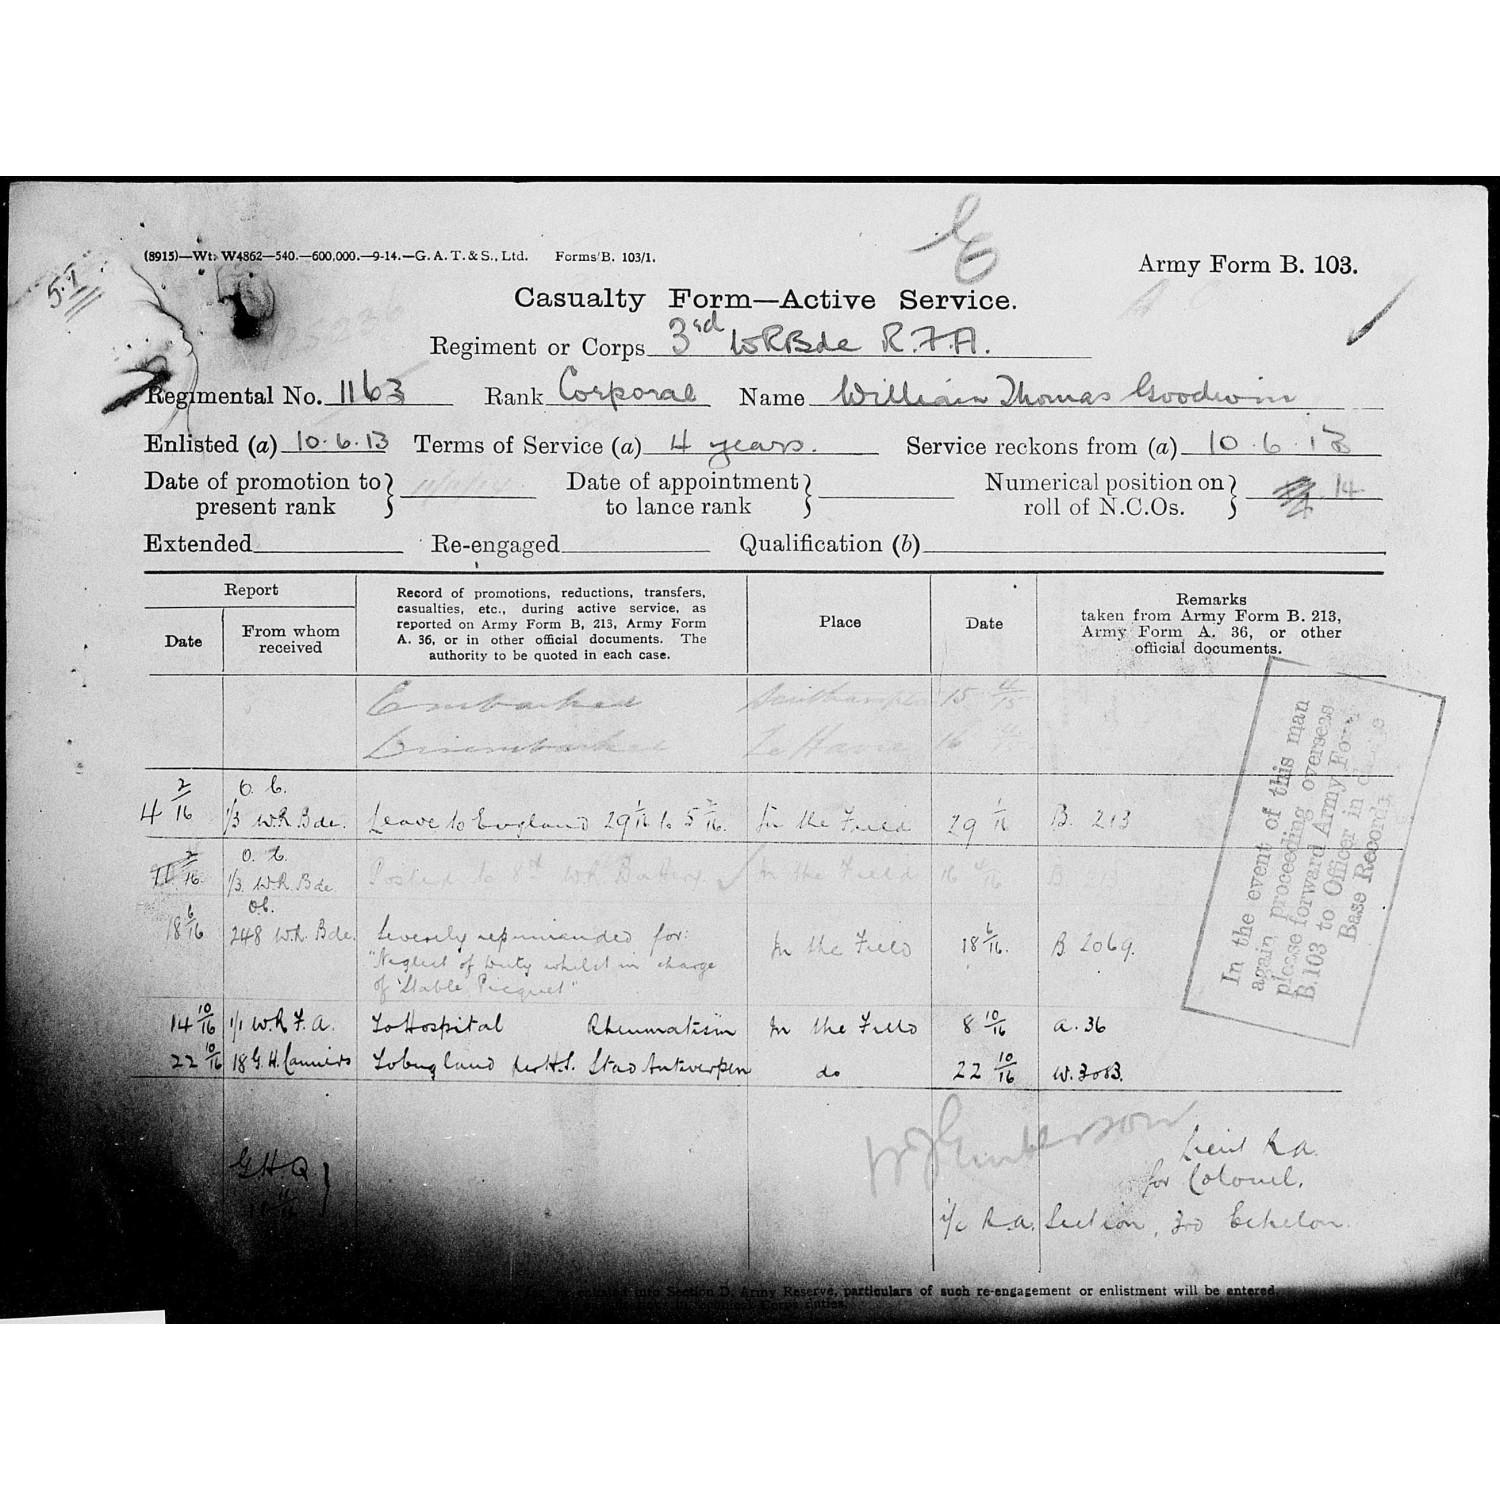 5.I
(8915)—Wt. W4862—540.—600,000.—9-14.—G. A. T. & S., Ltd. Forms/B. 103/1.
E
Army Form B. 103.
Casualty Form—Active Service.
Regiment or Corps 3rd WRBde R.F.A.
Regimental No. 1163 Rank Corporal Name William Thomas Goodwin
Enlisted (a) 10.6.13 Terms of Service (a) 4 years. Service reckons from (a) 10.6.13
Date of promotion to present rank Date of appointment to lance rank Numerical position on roll of N.C.Os. 14
Extended Re-engaged Qualification (b)
Report
Date From whom received
Record of promotions, reductions, transfers,
casualties, etc., during active service, as
reported on Army Form B, 213, Army Form
A. 36, or in other official documents. The
authority to be quoted in each case.
Place
Date
Remarks
taken from Army Form B. 213,
Army Form A. 36, or other
official documents.
Embarked Southampton 15 4/15
Disembarked Le Havre 16
4 2/16 O.C. 1/3 W.R Bde. Leave to England 29 1/16 to 5 2/16. In the Field 29 1/16 B. 213
11 2/16 O.C. 1/3 W.R. Bde Posted to 8th WR Battery In the Field 16 B 213
18 6/16 O.C. 248 W.R. Bde. Severely reprimanded for: In the Field 18 6/16. B 2069.
"Neglect of Duty whilst in charge
of Stable Picquet"
14 10/16 1/1 W.R F.A. To Hospital Rheumatism In the Field 8 10/16 A.36
22 10/16 18 G.H. Camiers To England per H.S. Stad Antwerpen do 22 10/16 W.3083.
In the event of this man
again proceeding overseas
please forward Army Form
B.103 to Officer in charge
Base Records.
G.H.Q
Lieut R.A.
for Colonel.
i/c R.A. Section, 3rd Echelon.
into Section D, Army Reserve, particulars of such re-engagement or enlistment will be entered.